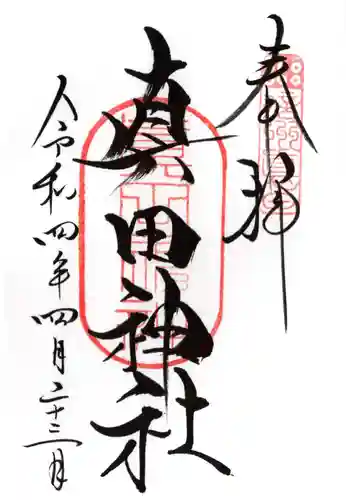 奉拝
真田神社
令和四年四月二十三月